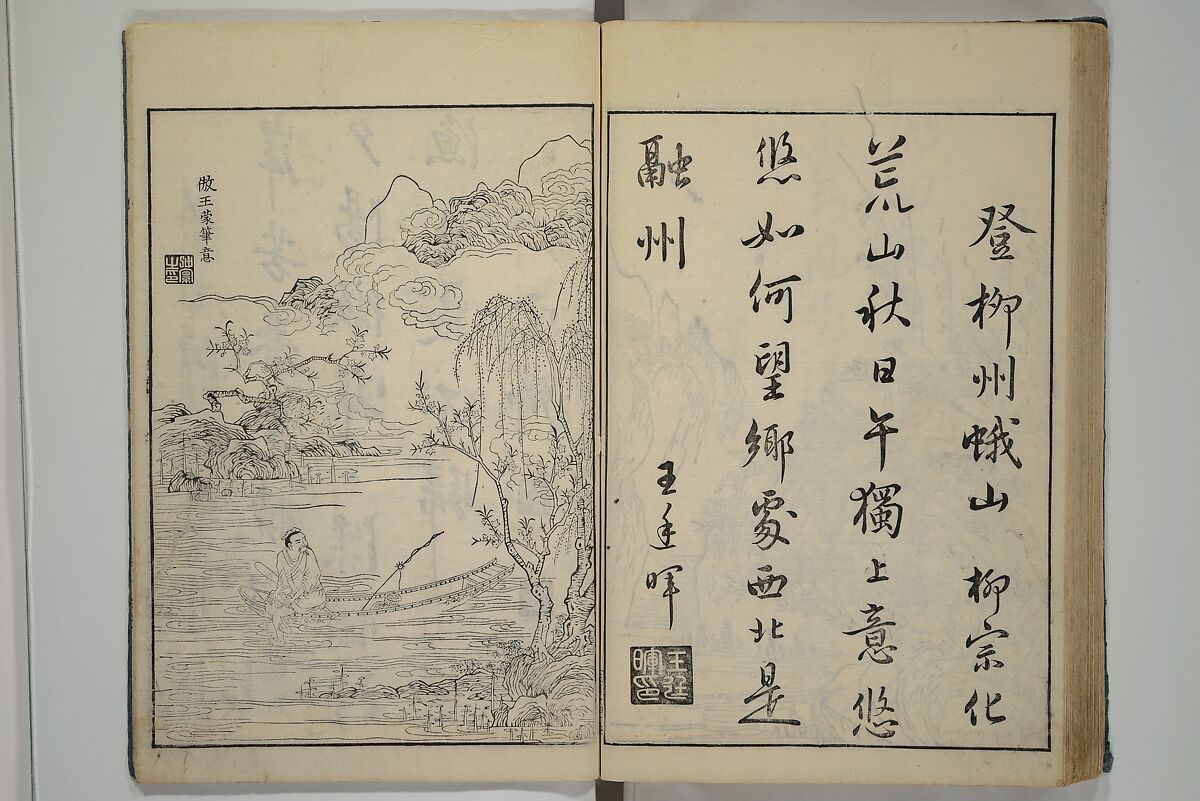 登柳州蛾山 柳宗化
荒山秋日午獨上意悠
悠如何望鄉處西北是
融州
王廷暉
王廷暉印
倣王蒙筆意